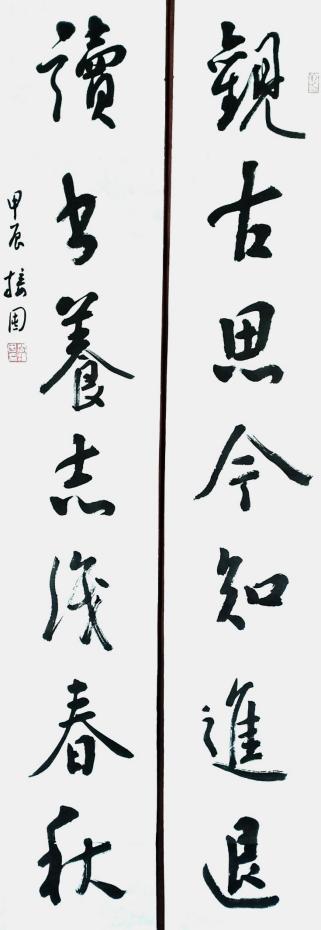 觀古思今知進退
讀書養志識春秋
甲辰